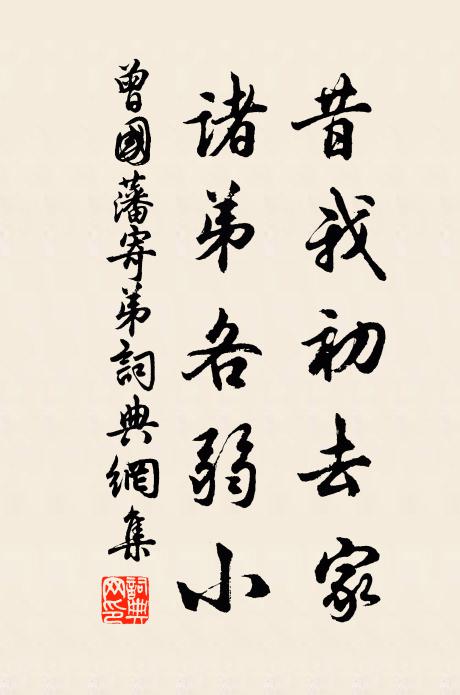 昔我初去家
諸弟各弱小
曾國藩寄弟詞典網集
詞典網印